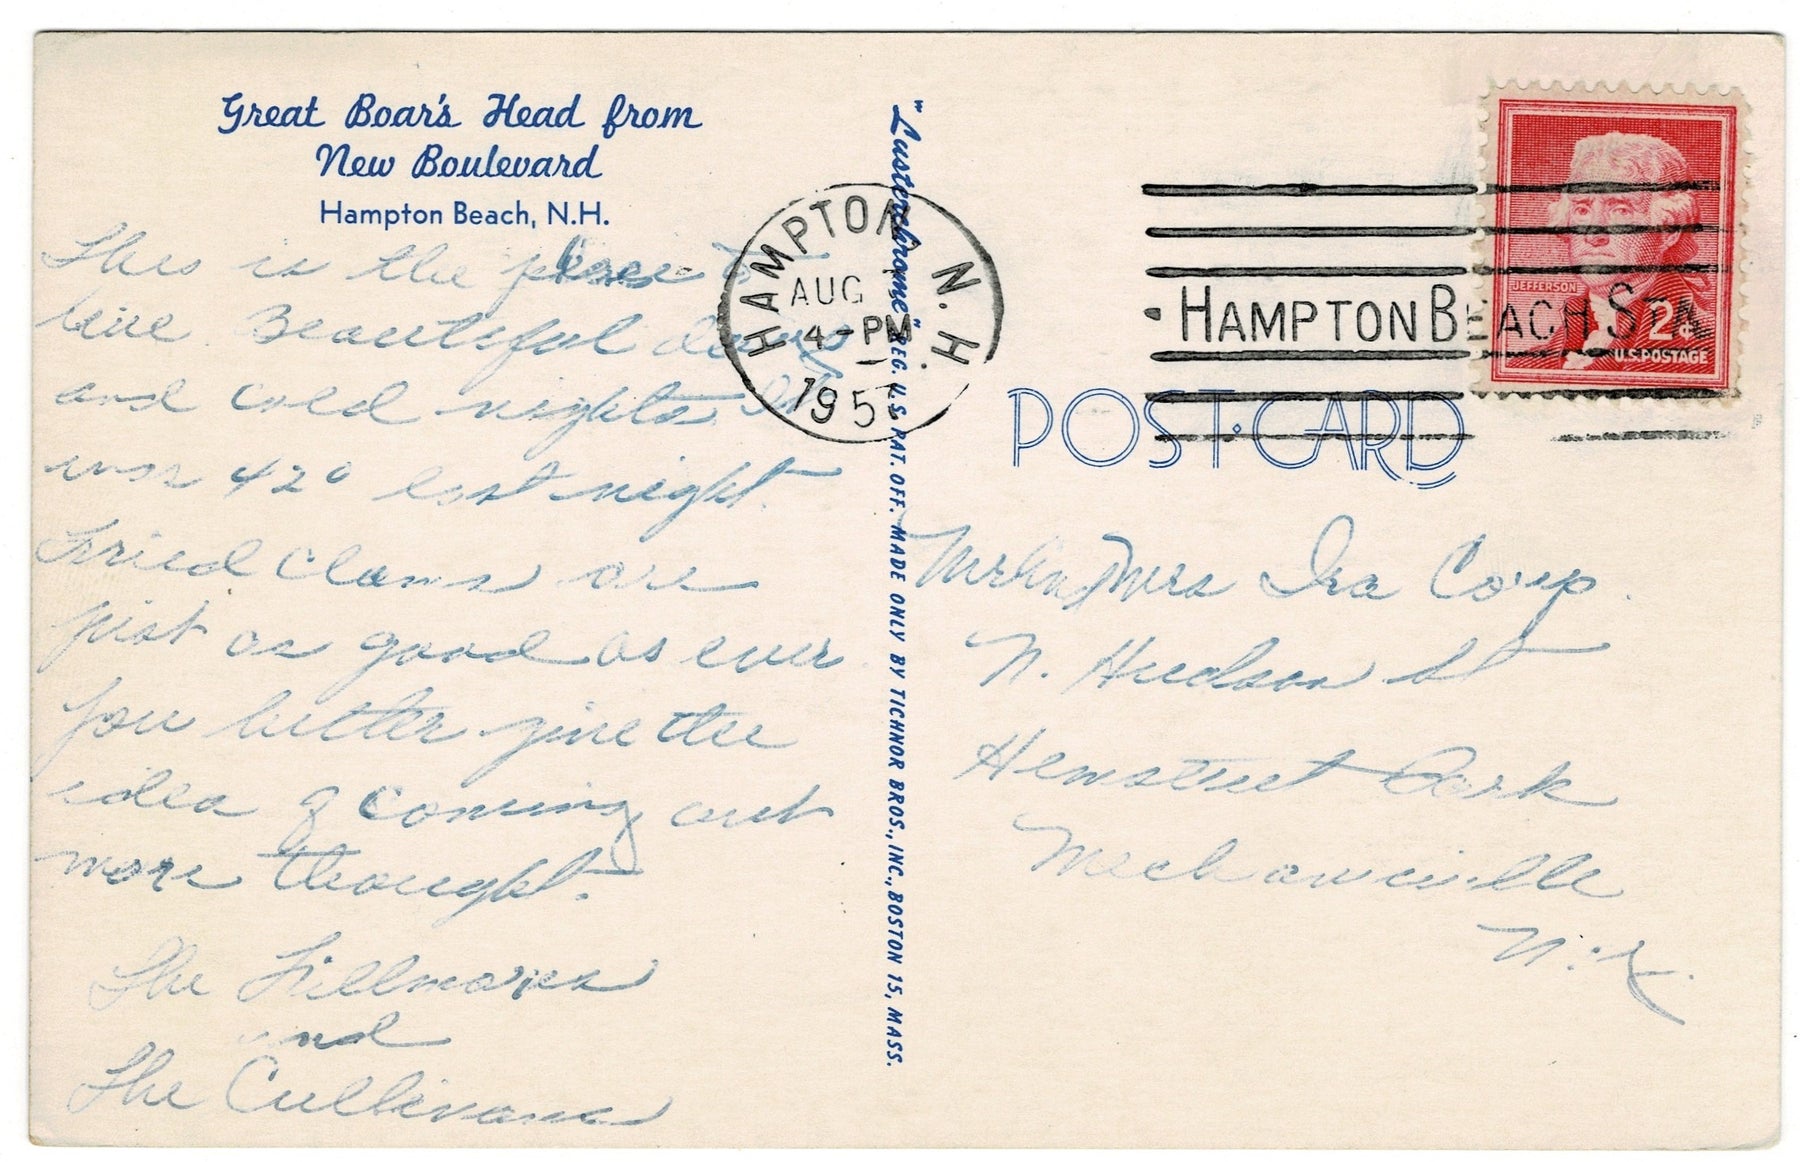 Great Boar's Head from
New Boulevard
Hampton Beach, N.H.
This is the place to
live. Beautiful days
and cold nights. It
was 42° last night.
Fried clams are
just as good as ever
you better give the
idea of coming out
more thought.
The Fillmores
and
The Cullivans
"Lusterchrome" REG. U.S. PAT. OFF. MADE ONLY BY TICHNOR BROS., INC., BOSTON 15, MASS.
HAMPTON, N.H.
AUG
4-PM
195
HAMPTON BEACH STA
JEFFERSON
2¢
U.S. POSTAGE
POST·CARD
Mrs Ira Corp.
N. Hudson St
Hemstreet Park
Mechanicville
N.Y.